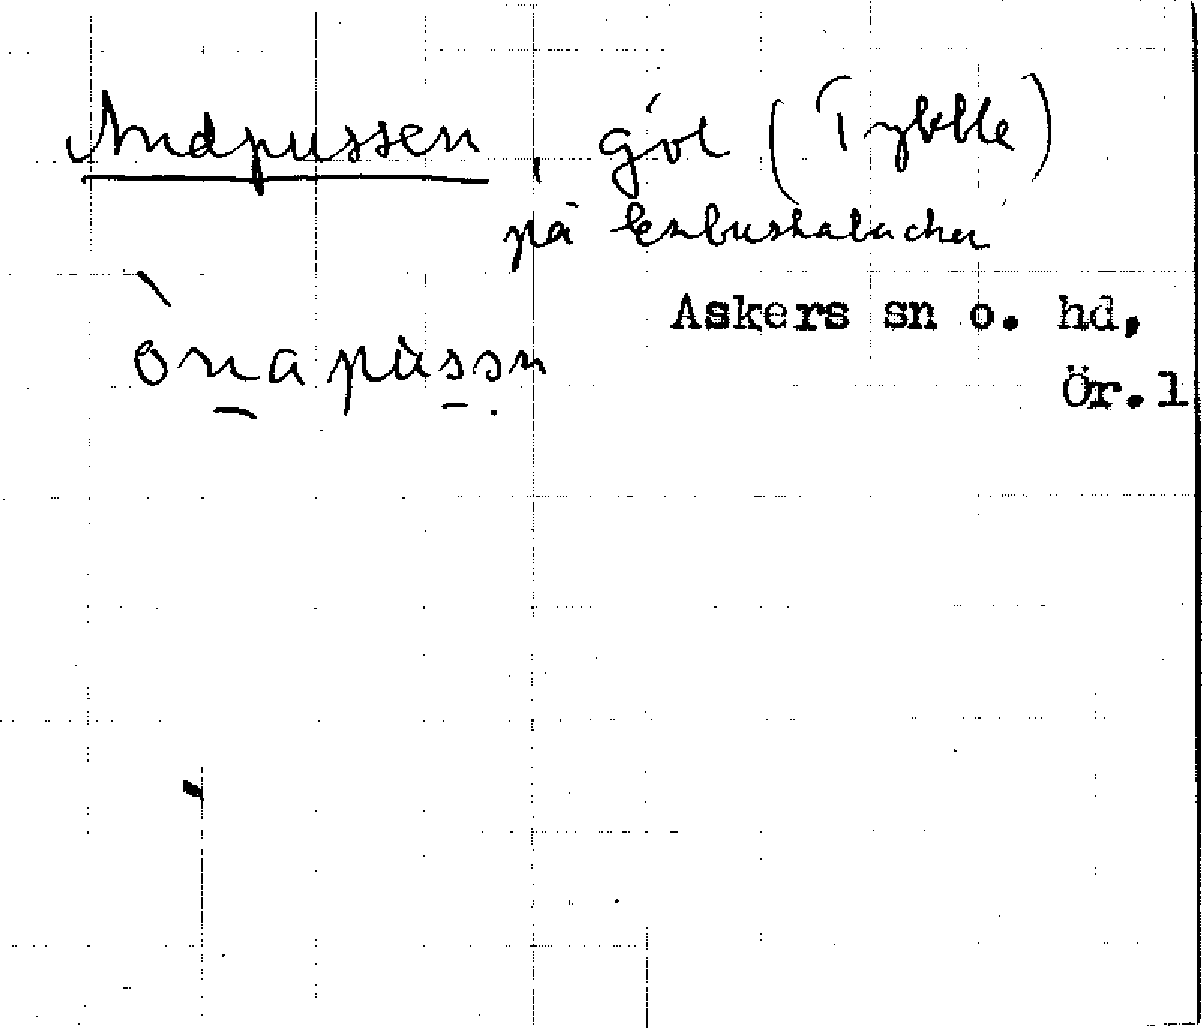 Andpussen, göl (Tybble)
på
Askers sn o. hd,
ònapùssn
Ör.l